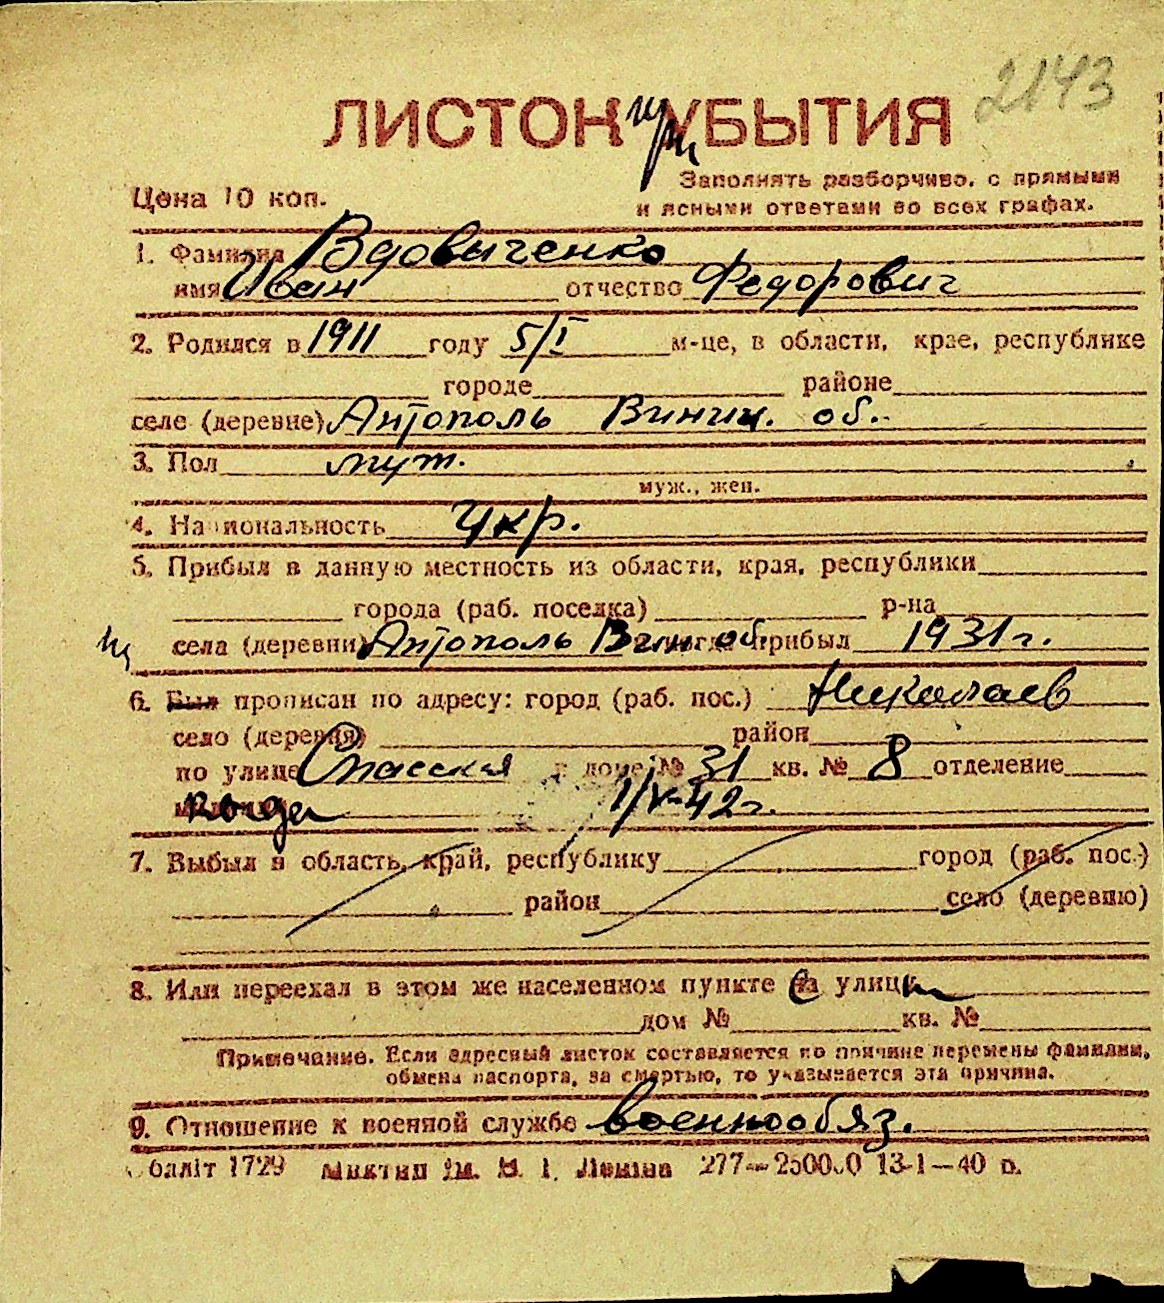 2143
ЛИСТОК при УБЫТИЯ
Цена 10 коп.
Заполнять разборчиво, с прямыми
и ясными ответами во всех графах.
1. Фамилия Вдовыченко
имя Иван отчество Федорович
2. Родился в 1911 году 5/I м-це, в области, крае, республике
городе районе
селе (деревне) Антополь Винниц. об.
3. Пол муж.
муж., жен.
4. Национальность Укр.
5. Прибыл в данную местность из области, края, республики
города (раб. поселка) р-на
села (деревни) Антополь Вин. об. когда прибыл 1931 г.
6. Был прописан по адресу: город (раб. пос.) Николаев
село (деревня) район
по улице Спасская в доме № 31 кв. № 8 отделение
когда 1/V-42 г.
7. Выбыл в область, край, республику город (раб. пос.)
район село (деревню)
8. Или переехал в этом же населенном пункте с улицы
дом № кв. №
Примечание. Если адресный листок составляется по причине перемены фамилии,
обмена паспорта, за смертью, то указывается эта причина.
9. Отношение к военной службе военнообяз.
Обліт 1729 277—250000 13-1—40 р.